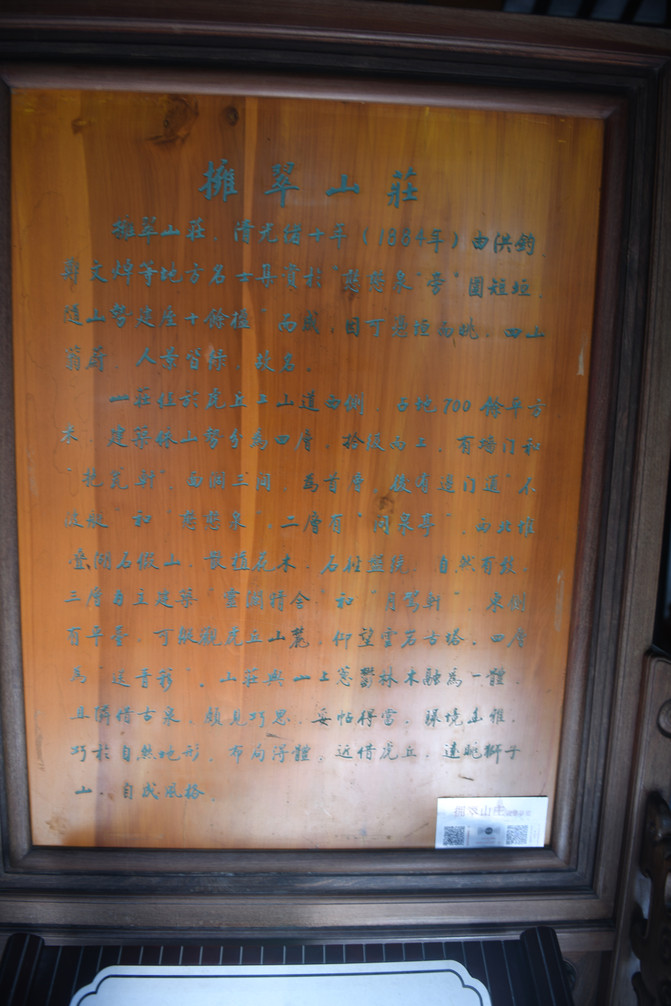 擁翠山莊
擁翠山莊，清光緒十年（1884年）由洪鈞、
鄭文焯等地方名士集資於“憨憨泉”旁“圍短垣，
隨山勢建屋十餘楹”而成，因可憑垣而眺，四山
蓊蔚，人景皆綠，故名。
山莊位於虎丘上山道西側，占地700餘平方
米，建築依山勢分為四層，拾級而上，有墻门和
“抱瓮軒”，面闊三间，為首層，後有邊门通“不
波艇”和“憨憨泉”。二層有“问泉亭”，西北堆
叠湖石假山，散植花木，石径盤繞，自然有致。
三層为主建築“靈瀾精舍”和“月駕軒”，東側
有平臺，可縱觀虎丘山麓，仰望雲岩古塔。四層
為“送青簃”。山莊與山上葱鬱林木融為一體，
且隣借古泉，頗見巧思，妥帖得當，環境幽雅，
巧於自然地形，布局得體，近借虎丘，遠眺獅子
山，自成風格。
擁翠山庄